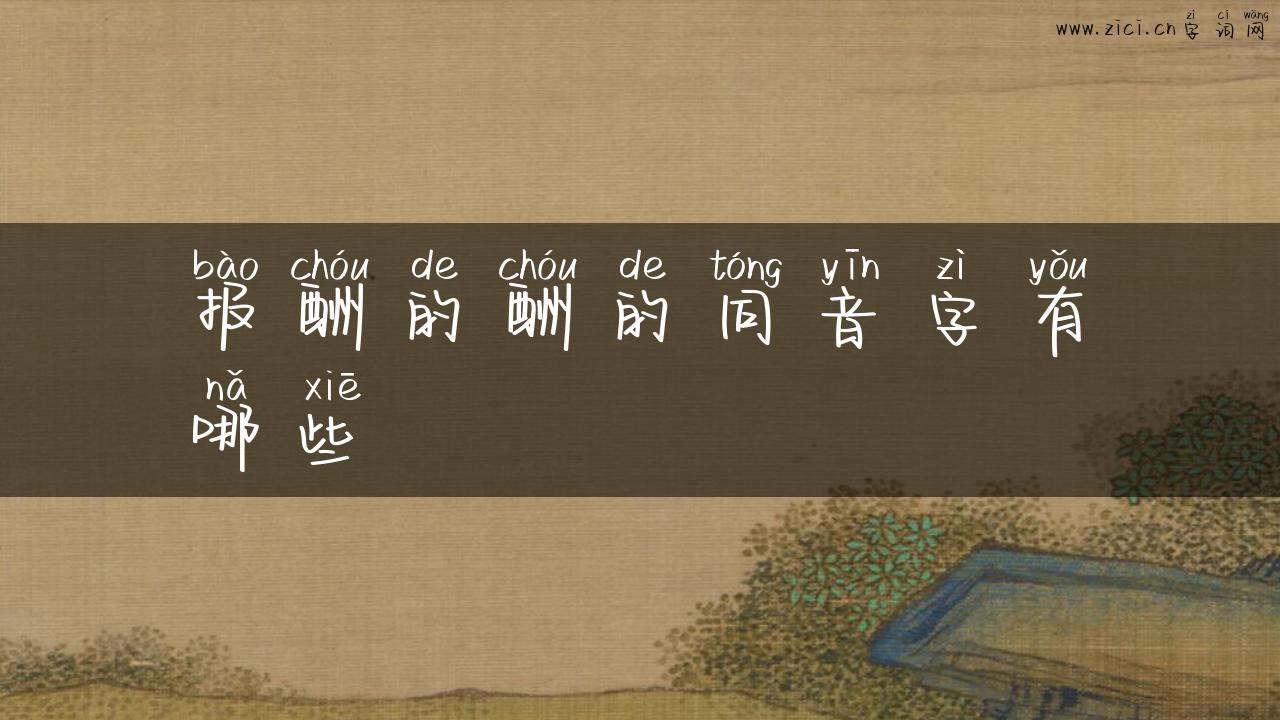 zì cí wǎng
www.zici.cn 字词网
bào chóu de chóu de tóng yīn zì yǒu
报酬的酬的同音字有
nǎ xiē
哪些